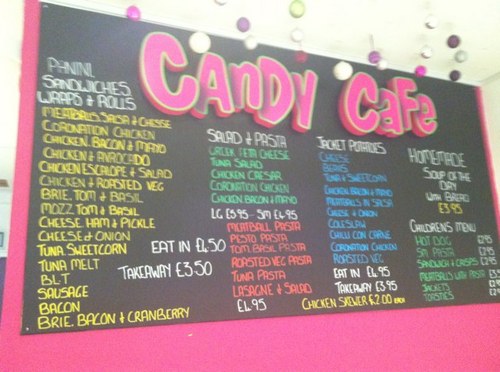 CANDY CAFE
PANINI,
SANDWICHES,
WRAPS & ROLLS
MEATBALLS SALSA & CHEESE
CORONATION CHICKEN
CHICKEN, BACON & MAYO
CHICKEN & AVOCADO
CHICKEN ESCALOPE & SALAD
CHICKEN & ROASTED VEG
BRIE, TOM & BASIL
MOZZ, TOM & BASIL
CHEESE HAM & PICKLE
CHEESE & ONION
TUNA SWEETCORN
TUNA MELT
BLT
SAUSAGE
BACON
BRIE, BACON & CRANBERRY
EAT IN £4.50
TAKEAWAY £3.50
SALAD & PASTA
GREEK FETA CHEESE
TUNA SALAD
CHICKEN CAESAR
CORONATION CHICKEN
CHICKEN BACON & MAYO
LG £5.95 - SM £4.95
MEATBALL PASTA
PESTO PASTA
TOM, BASIL PASTA
ROASTED VEG PASTA
TUNA PASTA
LASAGNE & SALAD
£4.95
JACKET POTATOES
CHEESE
BEANS
TUNA & SWEETCORN
CHICKEN BACON & MAYO
MEATBALLS IN SALSA
CHEESE & ONION
COLESLAW
CHILLI CON CARNE
CORONATION CHICKEN
ROASTED VEG
EAT IN £4.95
TAKEAWAY £3.95
CHICKEN SKEWER £2.00 EACH
HOMEMADE
SOUP OF THE
DAY
WITH BREAD
£3.95
CHILDRENS MENU
HOT DOG £2.95
SM. PASTA £2.95
SANDWICH & CRISPS £2.95
MEATBALLS WITH PASTA
JACKETS
TOASTIES